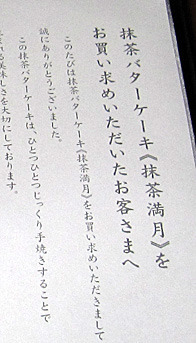 抹茶バターケーキ《抹茶満月》を
お買い求めいただいたお客さまへ
このたびは抹茶バターケーキ《抹茶満月》をお買い求めいただきまして
誠にありがとうございました。
この抹茶バターケーキは、ひとつひとつじっくり手焼きすることで
美味しさを大切にしております。